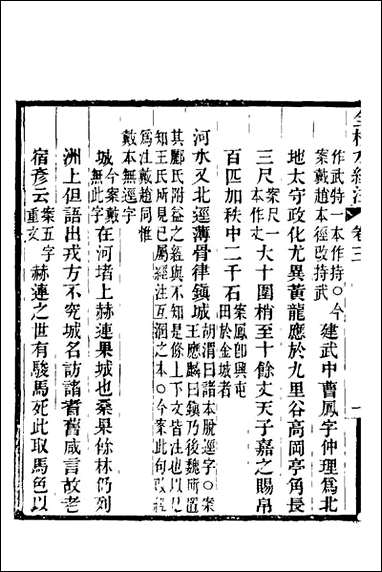 水經注 卷三
作武特一本作持○今
案戴趙本徑改持武
建武中曹鳳字仲理爲北
地太守政化尤異黃龍應於九里谷高岡亭角長
三尺案尺一本作丈大十圍梢至十餘丈天子嘉之賜帛
百匹加秩中二千石案鳳卽興屯田於金城者
河水又北逕薄骨律鎮城胡渭曰諸本脫逕字○案王應麟曰鎮乃後魏所置
其酈氏附益之經與不知是條上下文皆注也以此
知王氏所見已屬經注互溷之本○今案此句改經
爲注戴趙同惟
戴本無逕字
城今案戴無此字在河渚上赫連果城也桑果餘林仍列
洲上但語出戎方不究城名訪諸耆舊咸言故老
宿彥云案五字重文赫連之世有駿馬死此取馬色以